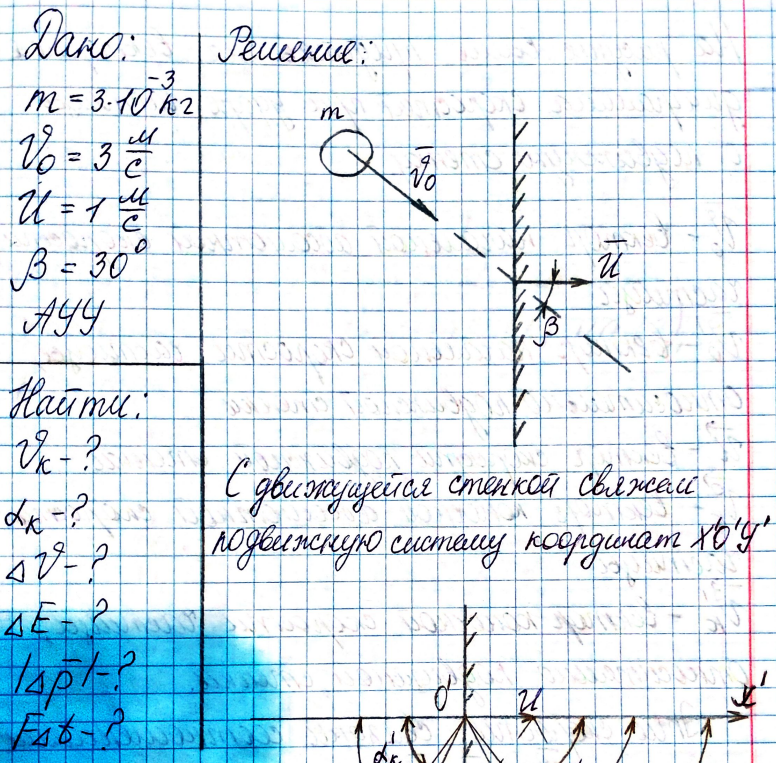 Дано:
m = 3·10⁻³ кг
V₀ = 3 м/с
U = 1 м/с
β = 30°
АУУ
Найти:
Vк - ?
αк - ?
ΔV - ?
ΔE - ?
|Δp̅| - ?
FΔt - ?
Решение:
m
V̅₀
U̅
β
С движущейся стенкой свяжем
подвижную систему координат X'O'Y'
O'
U
X'
α'к